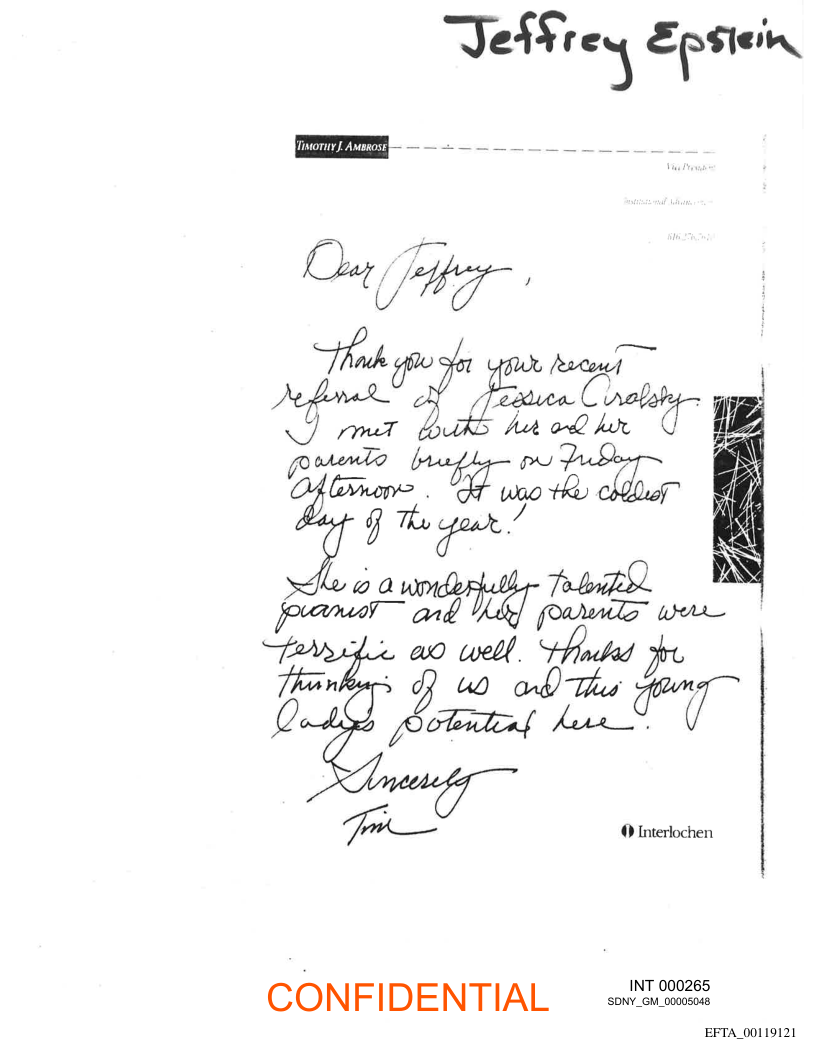 Jeffrey Epstein
TIMOTHY J. AMBROSE
Vice President
Institutional
Dear Jeffrey,
Thank you for your recent
referral of Jessica
I met with her and her
parents briefly on Friday
afternoon. It was the coldest
day of the year!
She is a wonderfully talented
pianist and her parents were
terrific as well. Thanks for
thinking of us and this young
lady's potential here.
Sincerely
Tim
Interlochen
CONFIDENTIAL
INT 000265
SDNY_GM_00005048
EFTA_00119121